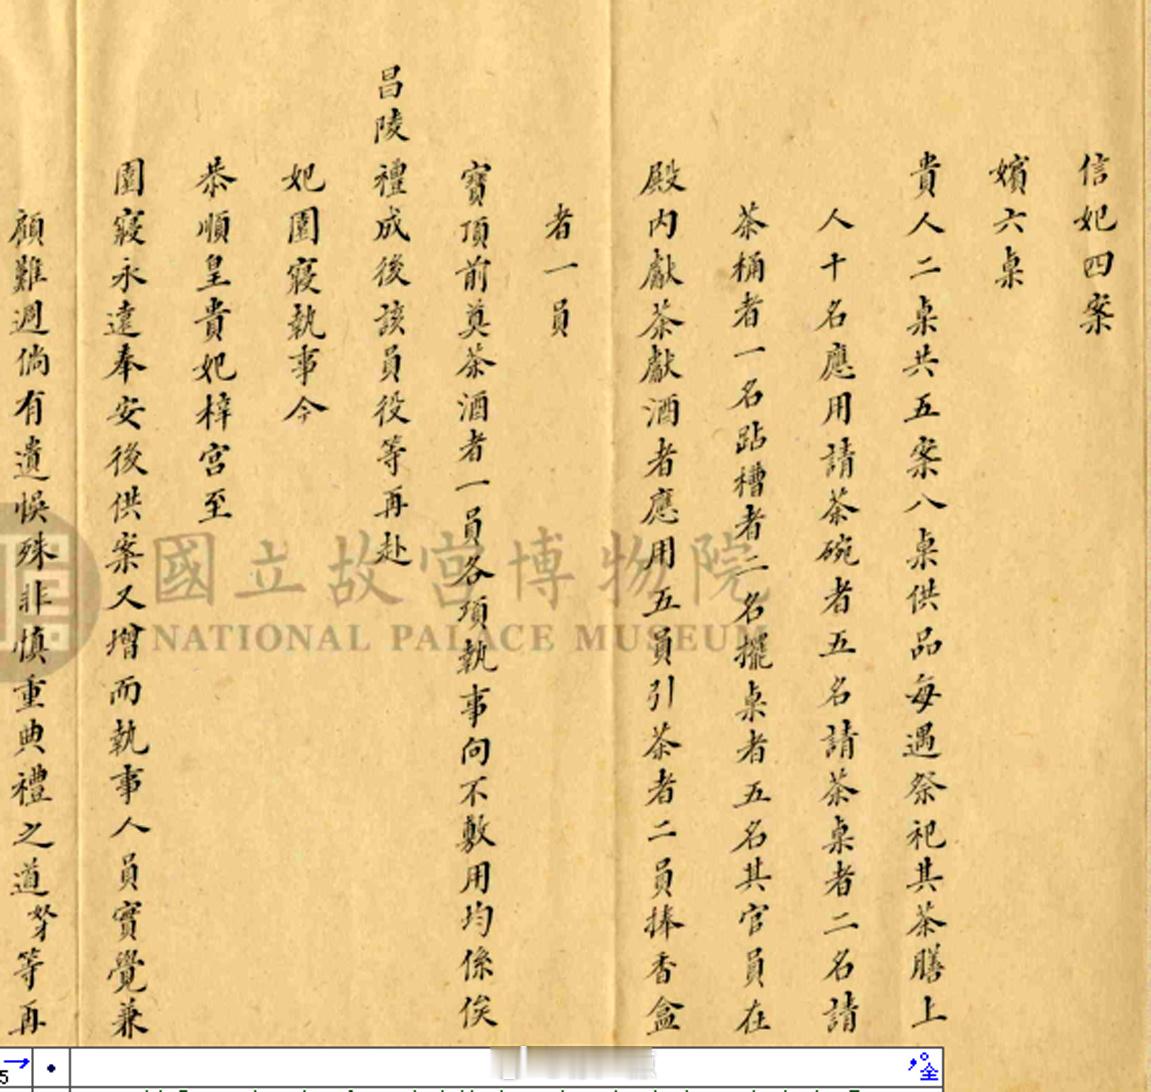 信妃四案
嬪六桌
貴人二桌共五案八桌供品每遇祭祀其茶膳上
人十名應用請茶碗者五名請茶桌者二名請
茶桶者一名跕槽者二名擺桌者五名其官員在
殿内獻茶獻酒者應用五員引茶者二員捧香盒
者一員
寶頂前奠茶酒者一員各項執事向不敷用均係俟
昌陵禮成後該員役等再赴
妃園寢執事今
恭順皇貴妃梓宮至
園寢永遠奉安後供案又增而執事人員實覺兼
顧難週倘有遺悞殊非慎重典禮之道奴才等再
國立故宮博物院
NATIONAL PALACE MUSEUM
5
全